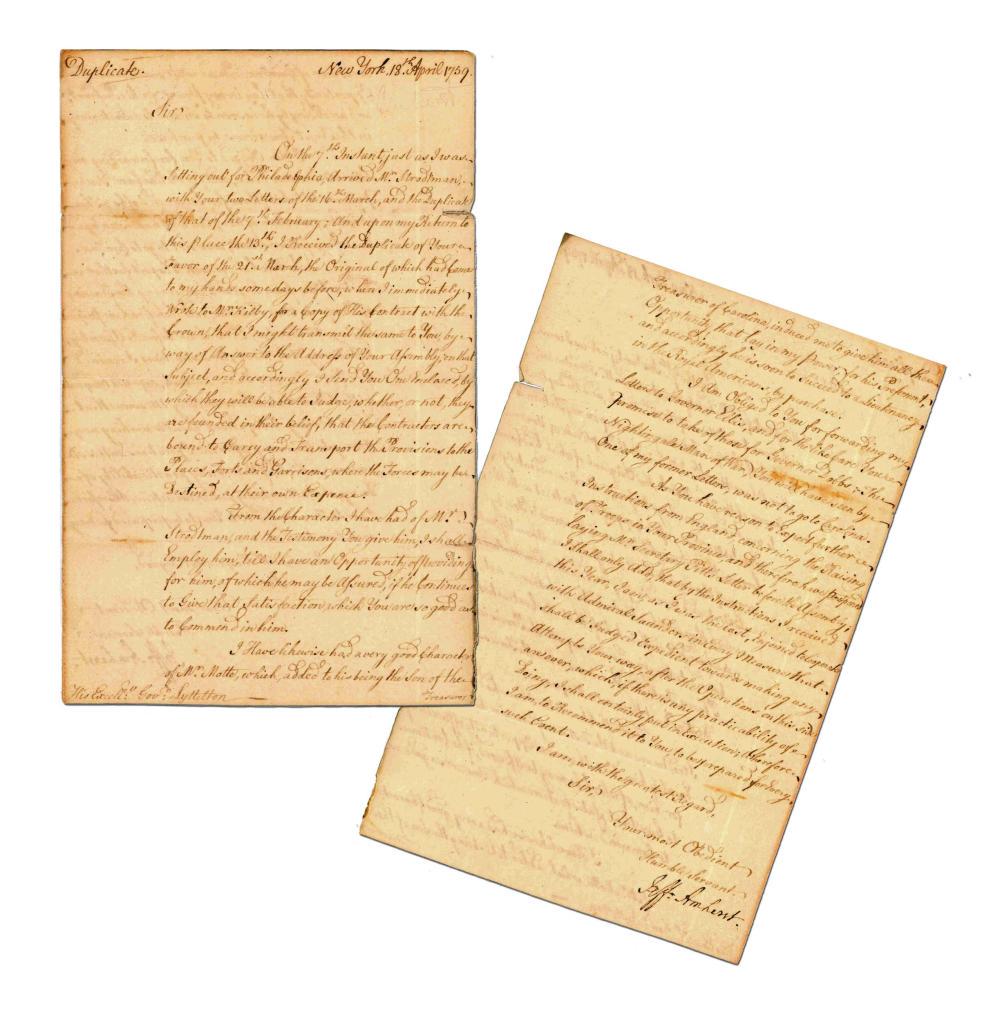 Duplicate. New York, 18th April 1759.
Sir,
On the 7th Instant, just as I was
setting out for Philadelphia, Arrived Mr. Strodtman,
with Your two Letters of the 16th March, and the Duplicate
of that of the 7th February; And upon my Return to
this place the 13th, I Received the Duplicate of Your
Favor of the 21st March, the Original of which had Come
to my hands some days before, when I immediately
Wrote to Mr. Kilby, for a Copy of His Contract with the
Crown, that I might transmit the same to You by
way of Answer to the Address of Your Assembly, on that
Subject, and accordingly I Send You One Enclosed, by
which they will be able to Judge, whether, or not, they
are founded in their belief, that the Contractors are
bound to Carry and Transport the Provisions to the
Places, Forts and Garrisons, where the Forces may be
Destined, at their own Expence.
From the Character I have had of Mr.
Strodtman, and the Testimony You give him, I shall
Employ him, 'till I have an Opportunity of Providing
for him, of which he may be Assured, if he Continues
to Give that Satisfaction, which You are so good as
to Commend in him.
I Have likewise had a very good Character
of Mr. Motte, which, added to his being the Son of the
Treasurer
His Excelly. Govr. Lyttelton
Treasurer of Carolina, induced me to give him all the
Opportunity that lay in my power, for his Preferment,
and accordingly he is soon to Succeed to a Lieutenancy
in the Royal Americans, by purchase.
I Am Obliged to You for forwarding my
Letters to Governor Ellis, and for the like Care You
promise to take of those for Governor Dobbs; The
Nightingale Man of War, You will have seen by
One of my former Letters, was not to go to Carolina.
As You have reason to Expect further
Instructions from England concerning the Raising
of Troops in Your Province, and therefore have postponed
laying Mr. Secretary Pitt's Letter before the Assembly,
I shall only Add, that by the Instructions I received
this Year, I am, as I was the last, Enjoined to Cooperate
with Admiral Saunders, in Every Measure that
shall be Judged Expedient toward making any
Attempts Your way, after the Operations on this Side
are over, which, if there is any practicability of
Doing, I shall certainly put in Execution; therefore
I am to Recommend it to You, to be prepared for Every
such Event.
I am, with the greatest Regard,
Sir,
Your most Obedient
Humble Servant
Jeff: Amherst.